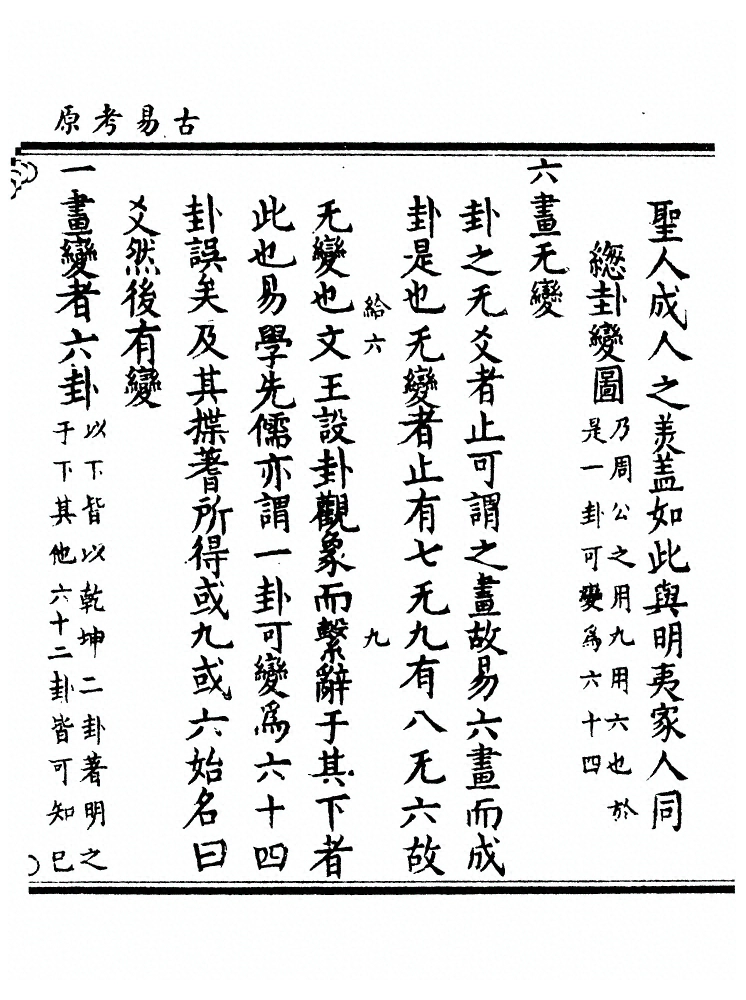 古易考原
聖人成人之美蓋如此與明夷家人同
總卦變圖
乃周公之用九用六也於
是一卦可變為六十四
六畫无變
卦之无爻者止可謂之畫故易六畫而成
卦是也无變者止有七无九有八无六故
給六 九
无變也文王設卦觀象而繫辭于其下者
此也易學先儒亦謂一卦可變為六十四
卦誤矣及其揲蓍所得或九或六始名曰
爻然後有變
一畫變者六卦
以下皆以乾坤二卦著明之
于下其他六十二卦皆可知已